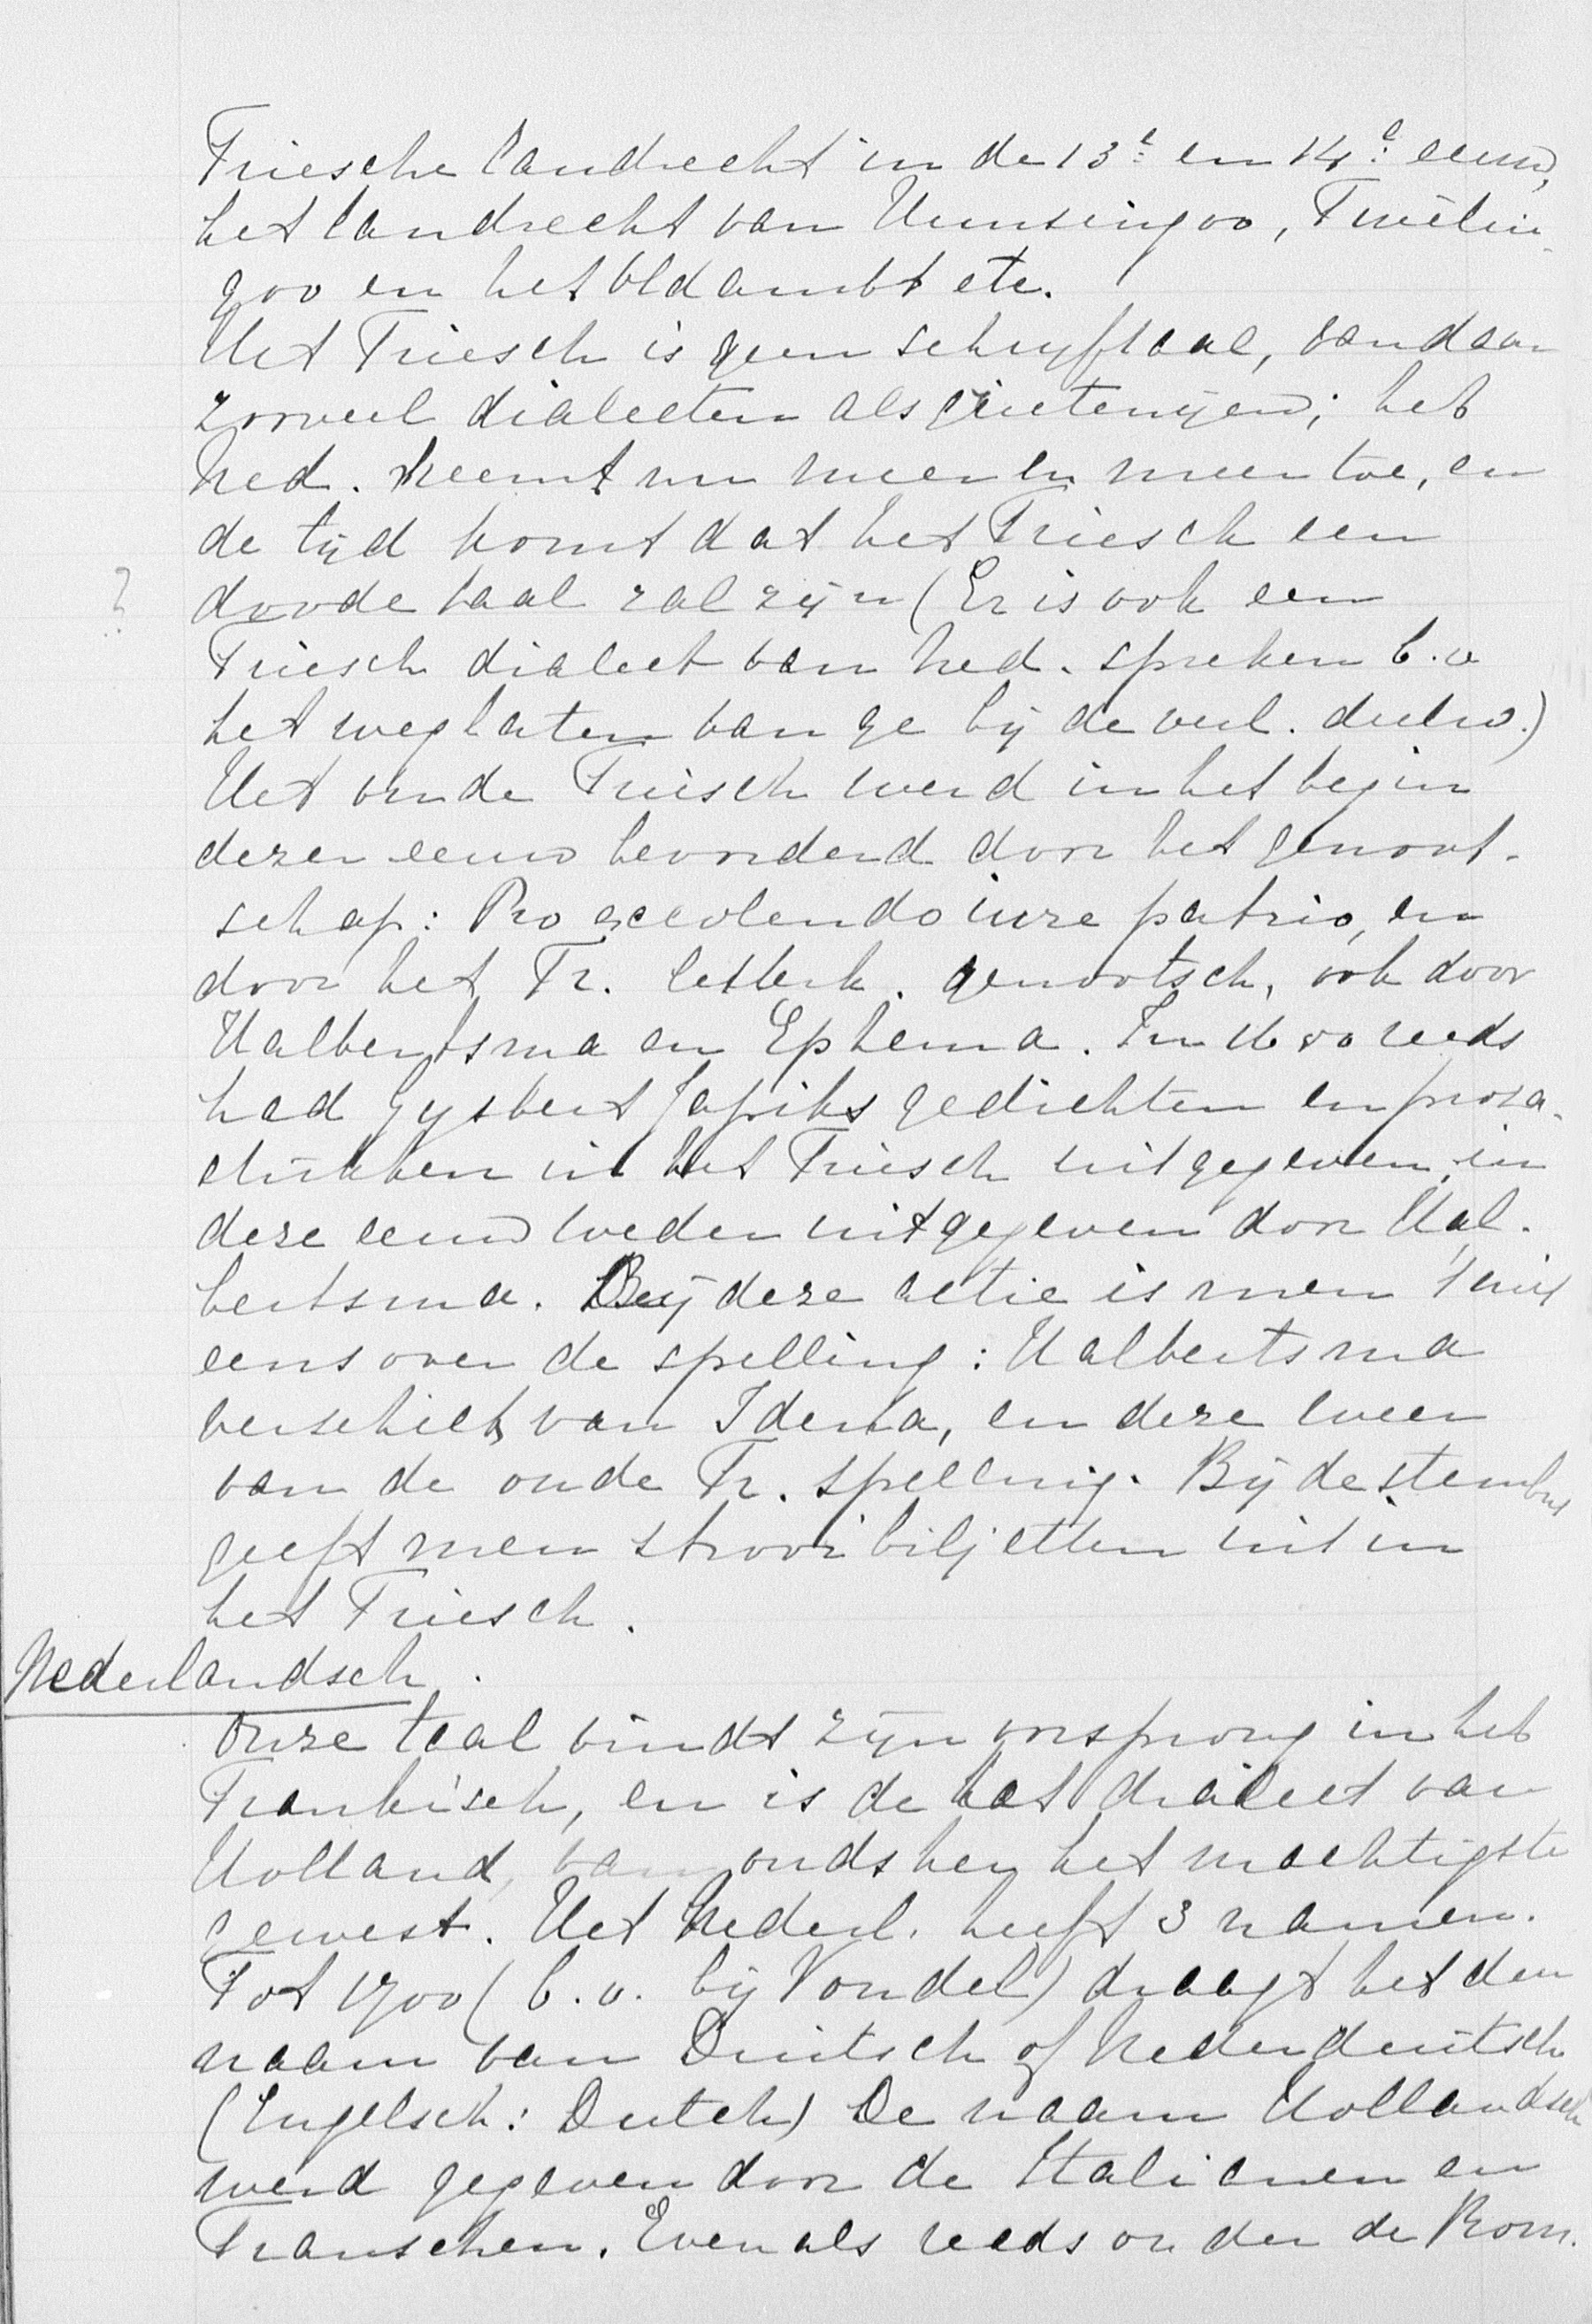 Friesche landrecht in de 13e en 14e eeuw,
het landrecht van Hunsingoo, Fivelin
goo en het Oldambt etc.
Het Friesch is geen schrijftaal, vandaar
zooveel dialecten als grietenijen; het
Ned. neemt nu meer en meer toe, en
de tijd komt dat het Friesch een
? doode taal zal zijn (Er is ook een
Friesch dialect van Ned. spreken b.v
het weglaten van ge bij de verl. deelw.)
Het oude Friesch werd in het begin
dezer eeuw bevorderd door het genoot-
schap: Pro excolendo iure patrio, en
door het Fr. letterk. genootsch, ook door
Halbertsma en Epkema. In reeds
had Gysbert Japiks gedichten en proza-
stukken in het Friesch uitgegeven, in
deze eeuw weder uitgegeven door Hal-
bertsma. Bij deze actie is men 't niet
eens over de spelling: Halbertsma
verschilt van Idema, en deze weer
van de oude Fr. spelling. Bij de stembus
geeft men strooibiljetten uit in
het Friesch.
Nederlandsch.
Onze taal vindt zijn oorsprong in het
Frankisch, en is de het dialect van
Holland, van oudsher het machtigste
gewest. Het Nederl. heeft 3 namen.
Tot 1700 (b.v. bij Vondel) draagt het den
naam van Duitsch of Nederduitsch
(Engelsch: Dutch) De naam Hollandsch
werd gegeven door de Italianen en
Franschen. Evenals reeds onder de Rom.